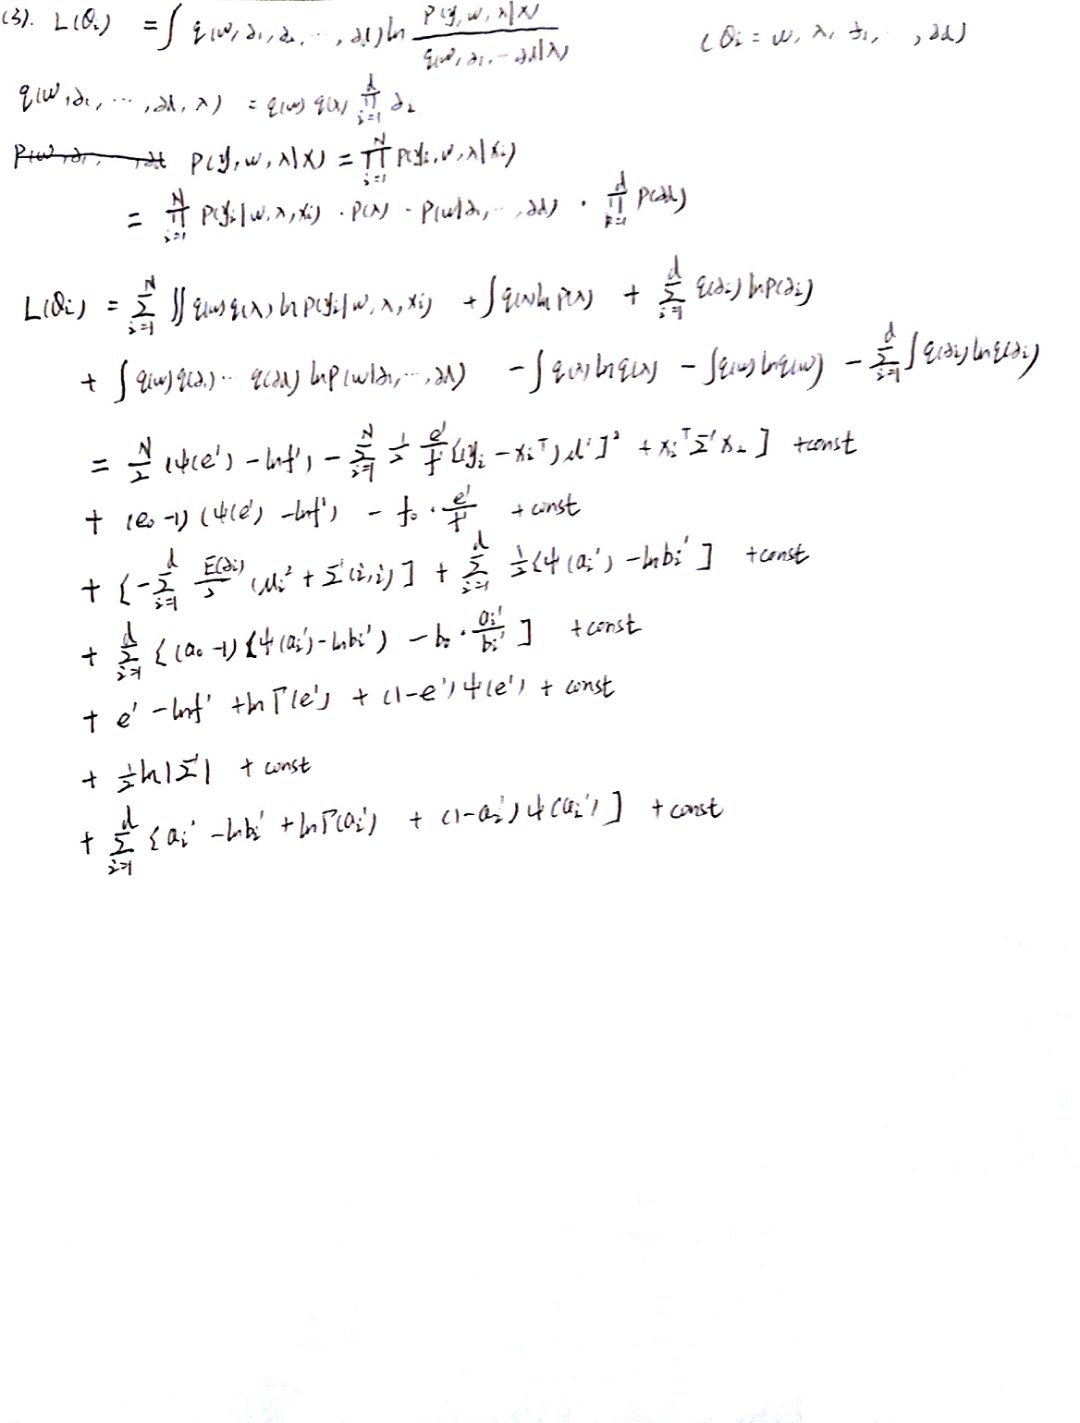 (3). L(θi) = ∫ q(w, α1, α2, ⋯, αd) ln P(y, w, λ|x) / q(w, α1, ⋯ αd|λ) (θi = w, λ, α1, ⋯, αd)
q(w, α1, ⋯, αd, λ) = q(w) q(λ) ∏_{i=1}^{d} αi
P(y, w, λ|x) = ∏_{i=1}^{N} P(yi, w, λ|xi)
= ∏_{i=1}^{N} P(yi|w, λ, xi) · P(λ) · P(w|α1, ⋯, αd) · ∏_{k=1}^{d} P(αd)
L(θi) = ∑_{i=1}^{N} ∬ q(w) q(λ) ln P(yi|w, λ, xi) + ∫ q(λ) ln P(λ) + ∑_{i=1}^{d} q(αi) ln P(αi)
+ ∫ q(w) q(α1) ⋯ q(αd) ln P(w|α1, ⋯, αd) - ∫ q(λ) ln q(λ) - ∫ q(w) ln q(w) - ∑_{i=1}^{d} ∫ q(αi) ln q(αi)
= N/2 (ψ(e') - ln f') - ∑_{i=1}^{N} 1/2 e'/f' [(yi - xi^T) μ']² + xi^T Σ' xi] + const
+ (e0 - 1) (ψ(e') - ln f') - f0 · e'/f' + const
+ [-∑_{i=1}^{d} E(αi)/2 (μi'² + Σ'(i,i)] + ∑_{i=1}^{d} 1/2 [ψ(ai') - ln bi'] + const
+ ∑_{i=1}^{d} [(a0 - 1) [ψ(ai') - ln bi') - b0 · ai'/bi'] + const
+ e' - ln f' + ln Γ(e') + (1 - e') ψ(e') + const
+ 1/2 ln |Σ'| + const
+ ∑_{i=1}^{d} [ai' - ln bi' + ln Γ(ai') + (1 - ai') ψ(ai')] + const